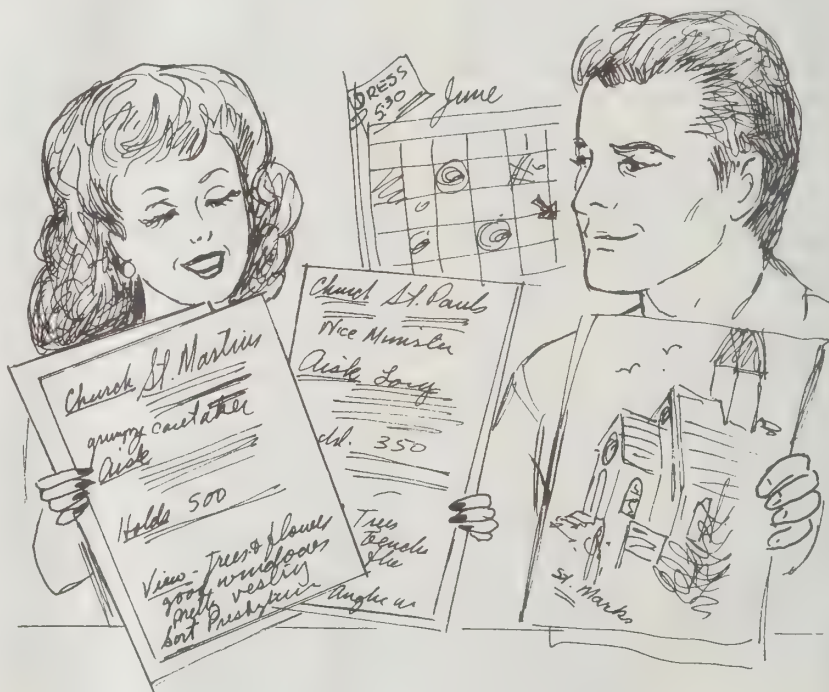 DRESS
5:30
June
Church St. Martins
grumpy caretaker
Aisle
Holds 500
View - Trees & flowers
good windows
pretty vestry
Sort Presbyterian
Church St. Pauls
Nice Minister
Aisle Long
350
Trees
St. Marks